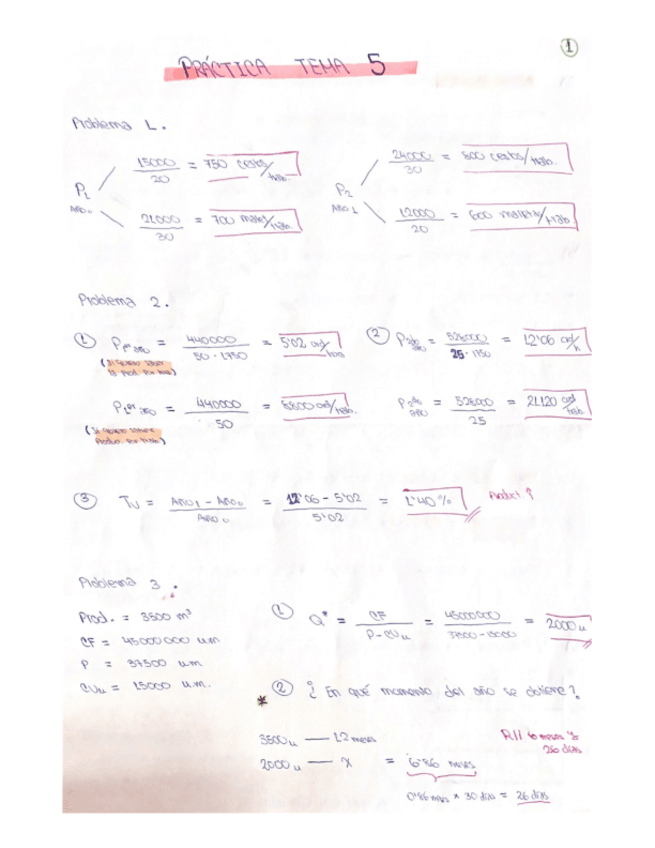 1
PRÁCTICA TEMA 5
Problema 1.
P1 Año 0
15000 / 20 = 750 cestas/trab.
21000 / 30 = 700 malet/trab.
P2 Año 1
24000 / 30 = 800 cestas/trab.
12000 / 20 = 600 maletas/trab
Problema 2.
1 P1er año = 440000 / 50 · 1750 = 5'02 ud/hora
(Si quiero saber la prod. por hora)
P1er año = 440000 / 50 = 8800 ud/trab.
(Si quiero saber produc. por trab)
2 P2do año = 528000 / 25 · 1750 = 12'06 ud/h
P2do año = 528000 / 25 = 21120 ud/trab
3 TV = Año 1 - Año 0 / Año 0 = 12'06 - 5'02 / 5'02 = 1'40 % Product ↑
Problema 3.
Prod. = 3500 m³
CF = 45000000 u.m
P = 37500 u.m
CVu = 15000 u.m.
1 Q* = CF / P - CVu = 45000000 / 37500 - 15000 = 2000 u
* 2 ¿En qué momento del año se obtiene?
3500u — 12 meses
2000u — x = 6'86 meses
0'86 mes * 30 días = 26 días
R// 6 meses y 26 días